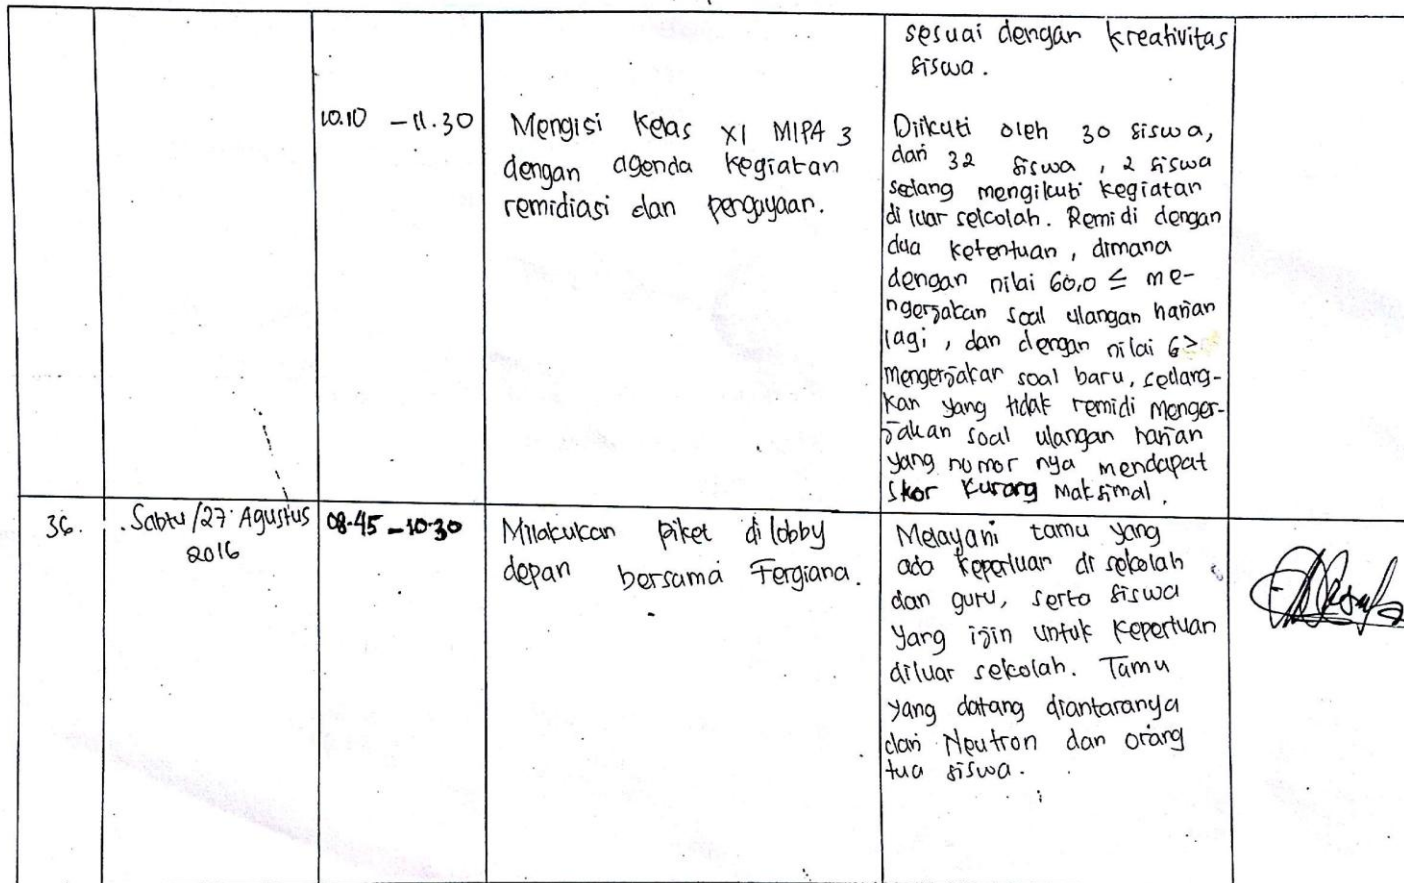 sesuai dengan kreativitas
siswa.
10.10 - 11.30
Mengisi Kelas XI MIPA 3
dengan agenda kegiatan
remidiasi dan pengayaan.
Diikuti oleh 30 siswa,
dari 32 siswa, 2 siswa
sedang mengikuti kegiatan
di luar sekolah. Remidi dengan
dua ketentuan, dimana
dengan nilai 60,0 ≤ me-
ngerjakan soal ulangan harian
lagi, dan dengan nilai 6>
mengerjakan soal baru, sedang-
kan yang tidak remidi menger-
jakan soal ulangan harian
yang nomor nya mendapat
skor kurang maksimal.
36.
Sabtu/27 Agustus
2016
08.45 - 10.30
Milakukan piket di lobby
depan bersama Fergiana.
Melayani tamu yang
ada keperluan di sekolah
dan guru, serta siswa
yang ijin untuk keperluan
diluar sekolah. Tamu
yang datang diantaranya
dari Neutron dan orang
tua siswa.